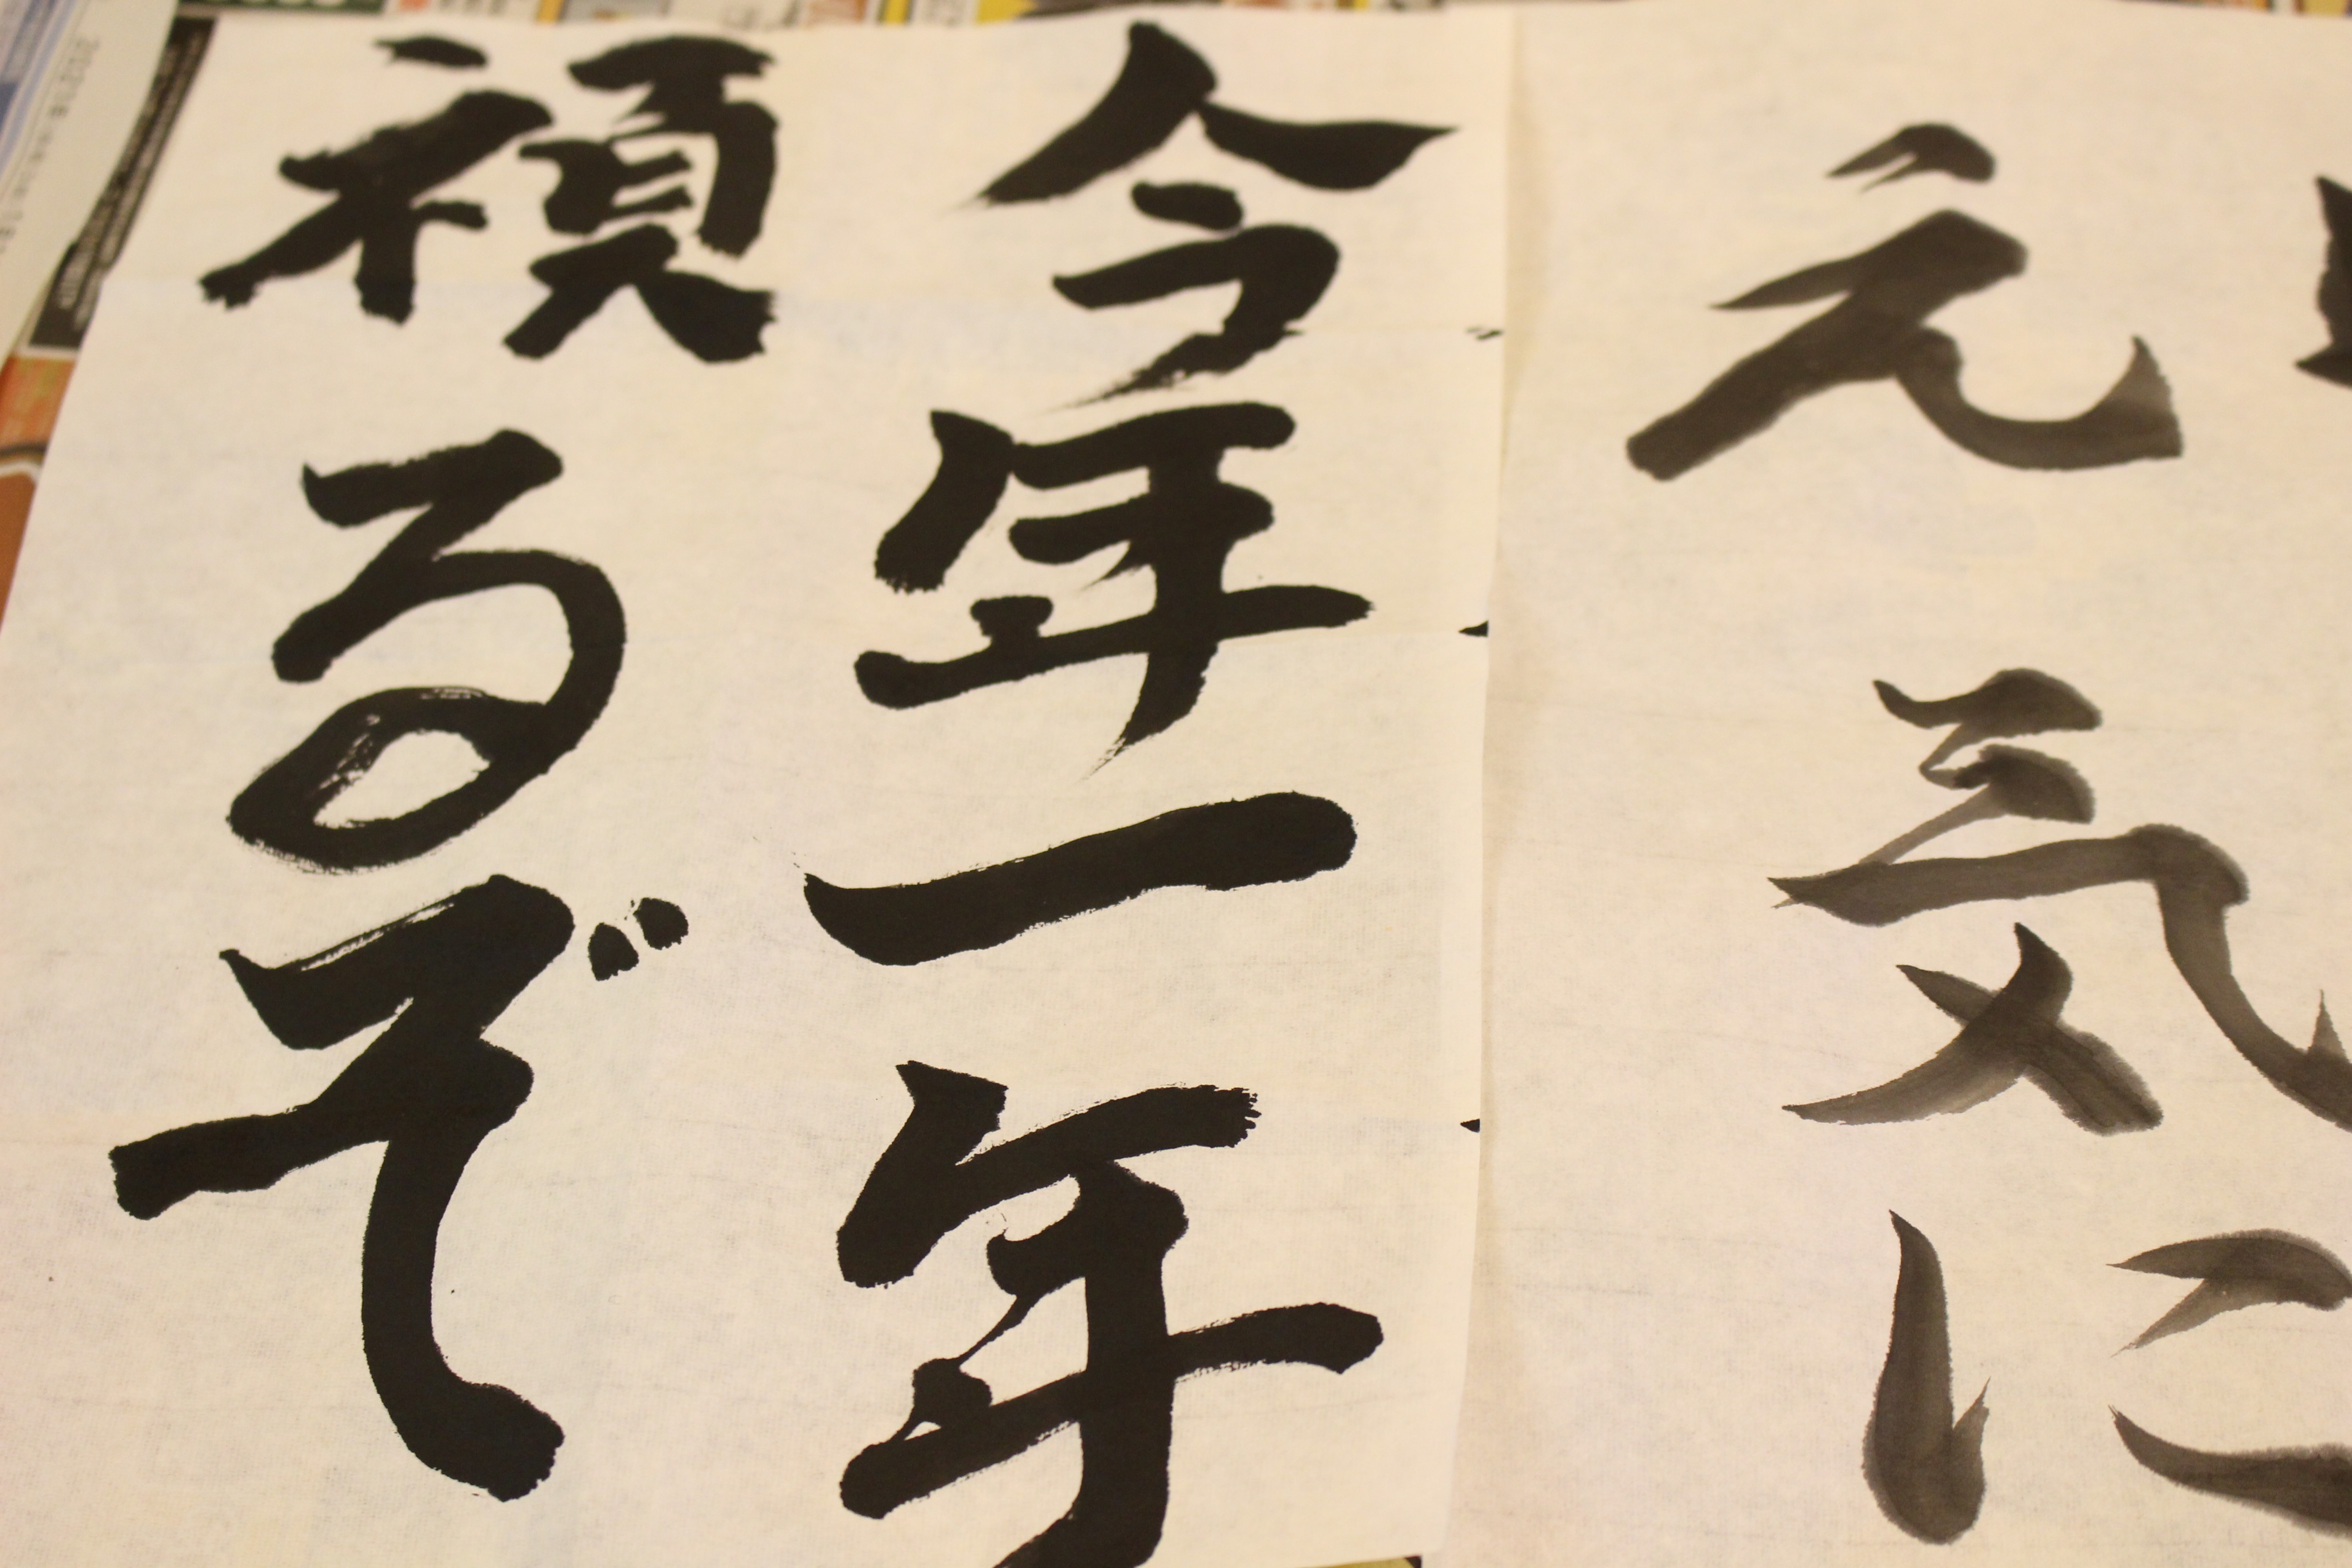 元気に
今年一年
るぞ